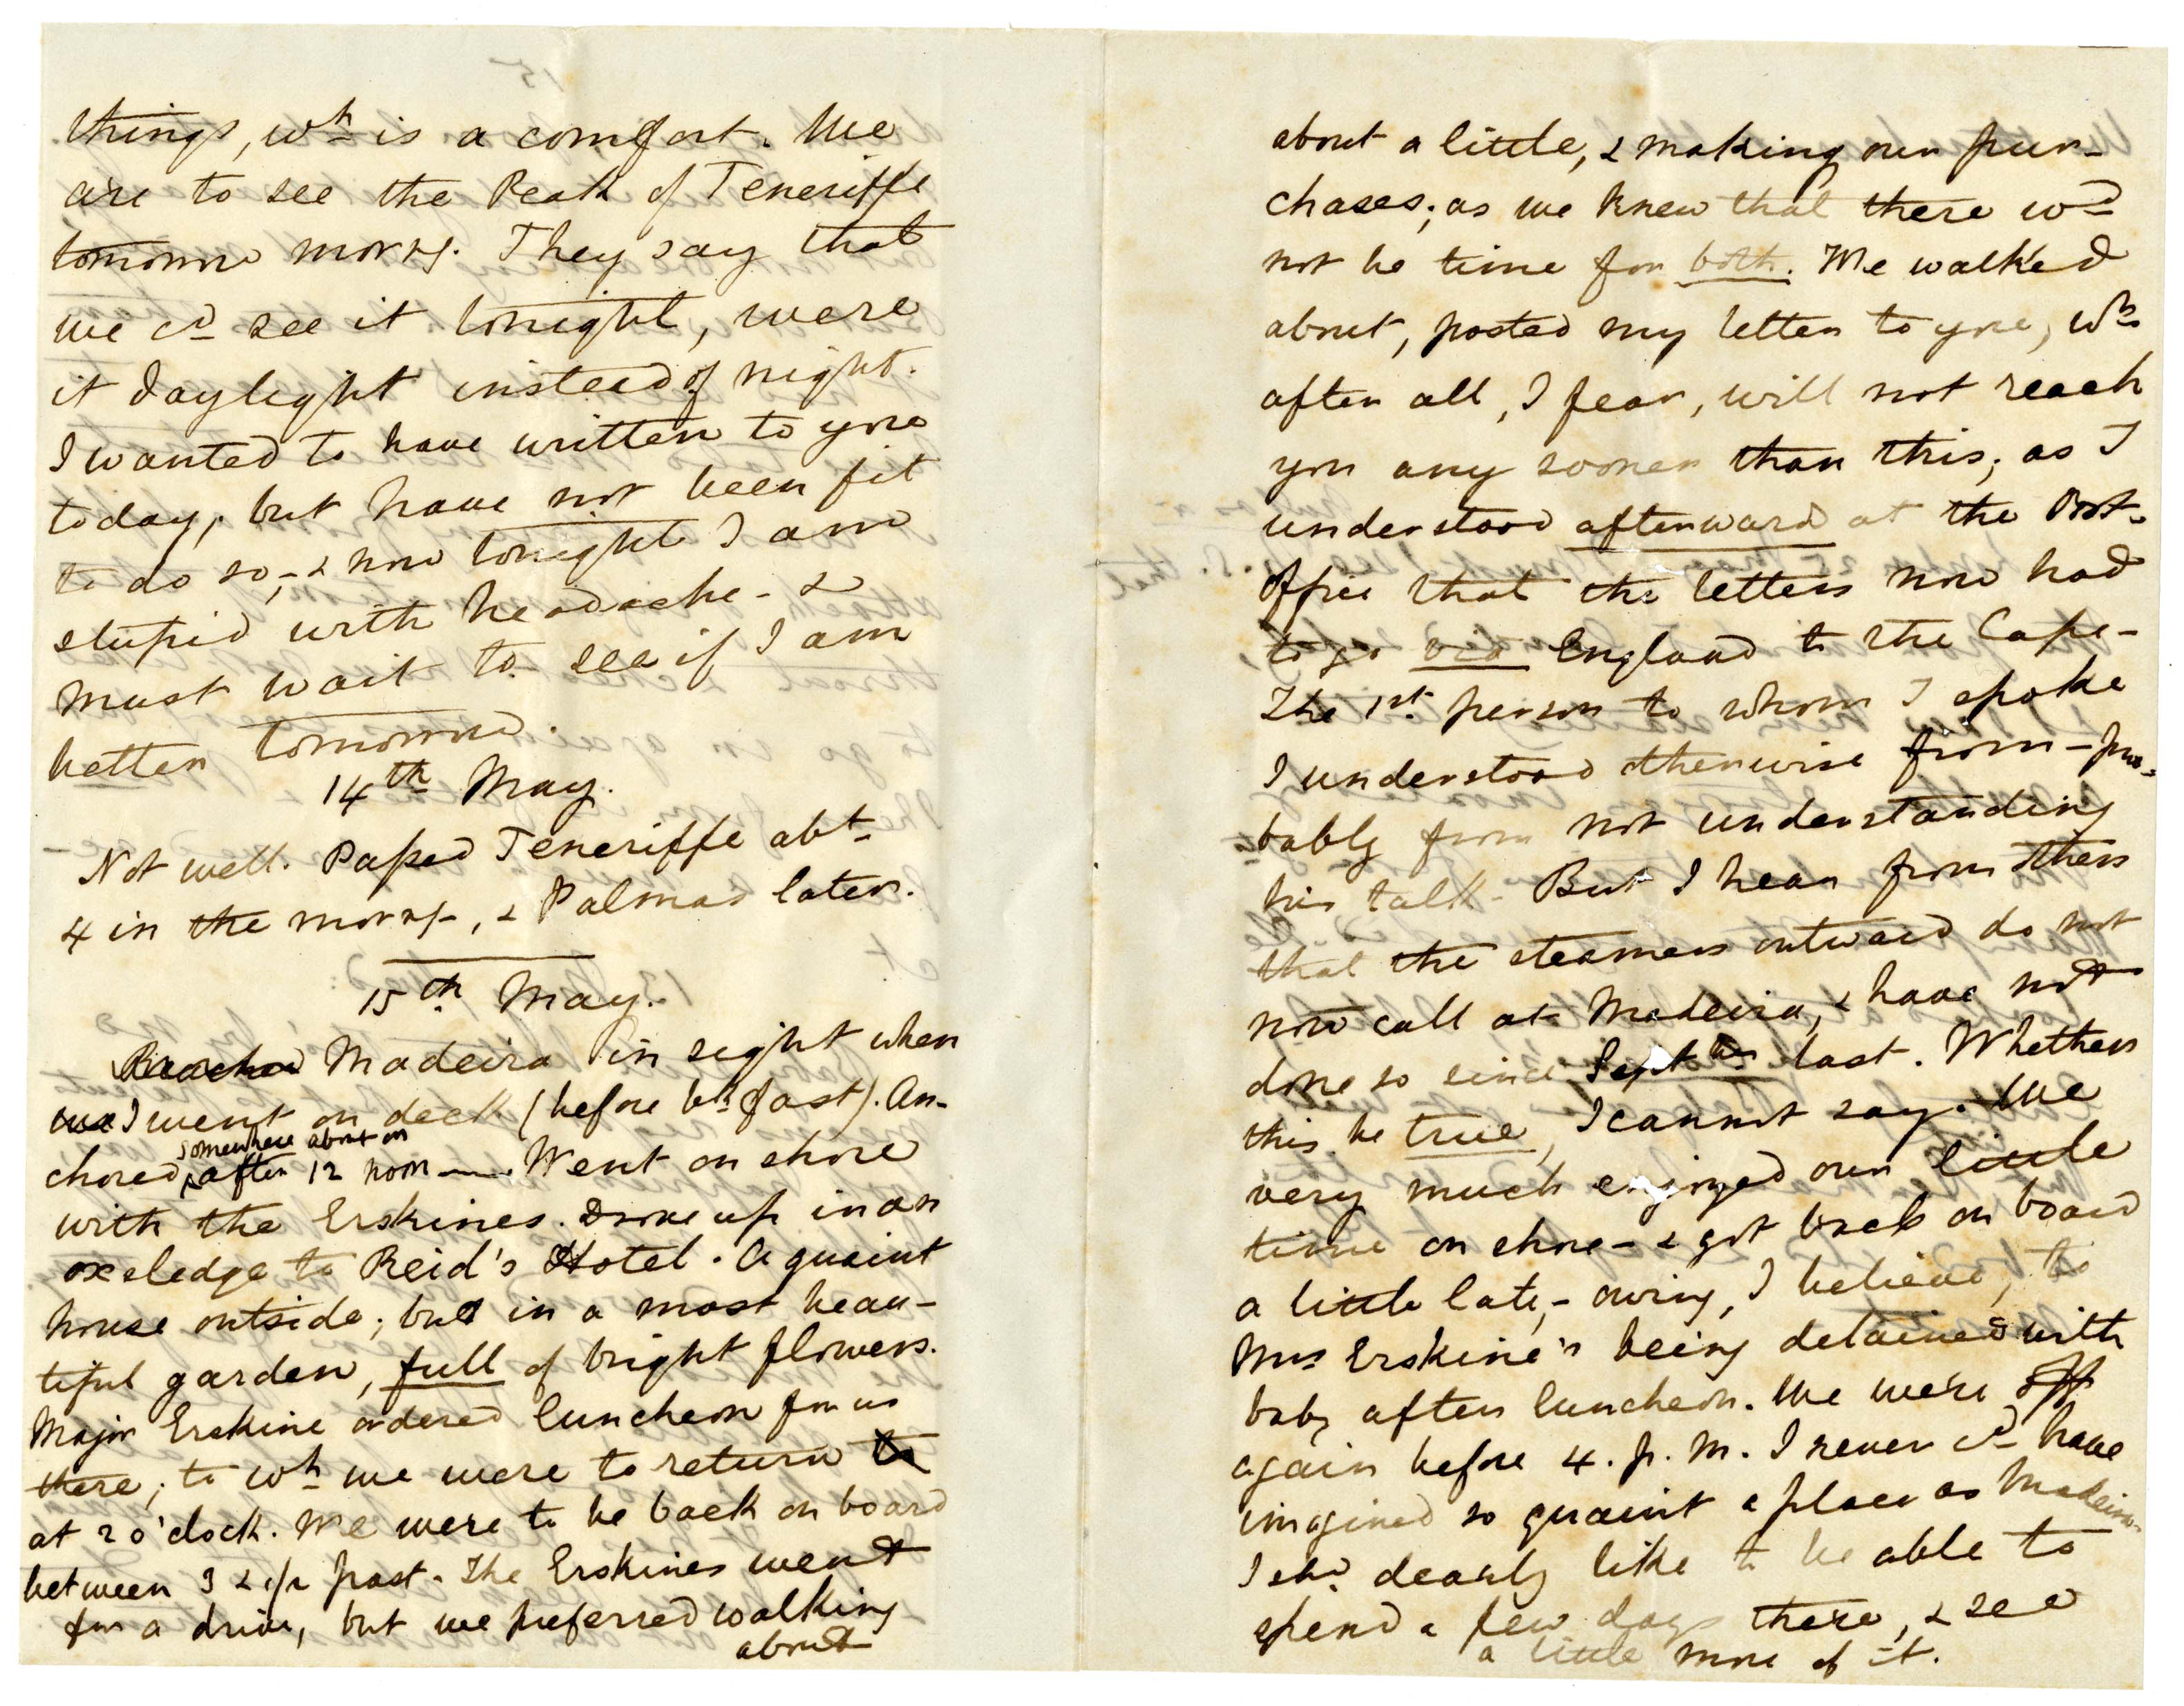 things, wh is a comfort. We
are to see the Peak of Teneriffe
tomorrow morng. They say that
we cd see it tonight, were
it daylight instead of night.
I wanted to have written to you
today; but have not been fit
to do so, - & now tonight I am
stupid with headache - &
must wait to see if I am
better tomorrow.
14th May.
Not well. Passed Teneriffe abt
4 in the morng, & Palmas later.
15th May.
Reached Madeira in sight when
we I went on deck (before bkfast). An-
chored somewhere about or after 12 noon. Went on shore
with the Erskines. Drove up in an
ox sledge to Reid's Hotel. A quaint
house outside; but in a most beau-
tiful garden, full of bright flowers.
Major Erskine ordered luncheon for us
there; to wh we were to return to
at 2 o'clock. We were to be back on board
between 3 & 1/2 past. The Erskines went
for a drive, but we preferred walking
about
about a little, & making our pur-
chases; as we knew that there wd
not be time for both. We walked
about, posted my letter to you, wh
after all, I fear, will not reach
you any sooner than this; as I
understood afterward at the Post-
Office that the letters now had
to go via England to the Cape -
The 1st person to whom I spoke
I understood otherwise from - pro-
bably from not understanding
his talk - But I hear from others
that the steamers outward do not
now call at Madeira, & have not
done so since Septber last. Whether
this be true, I cannot say. We
very much enjoyed our little
time on shore - & got back on board
a little late, - owing, I believe, to
Mrs Erskine's being detained with
baby after luncheon. We were off
again before 4. p. m. I never cd have
imagined so quaint a place as Madeira.
I shd. dearly like to be able to
spend a few days there, & see
a little more of it.